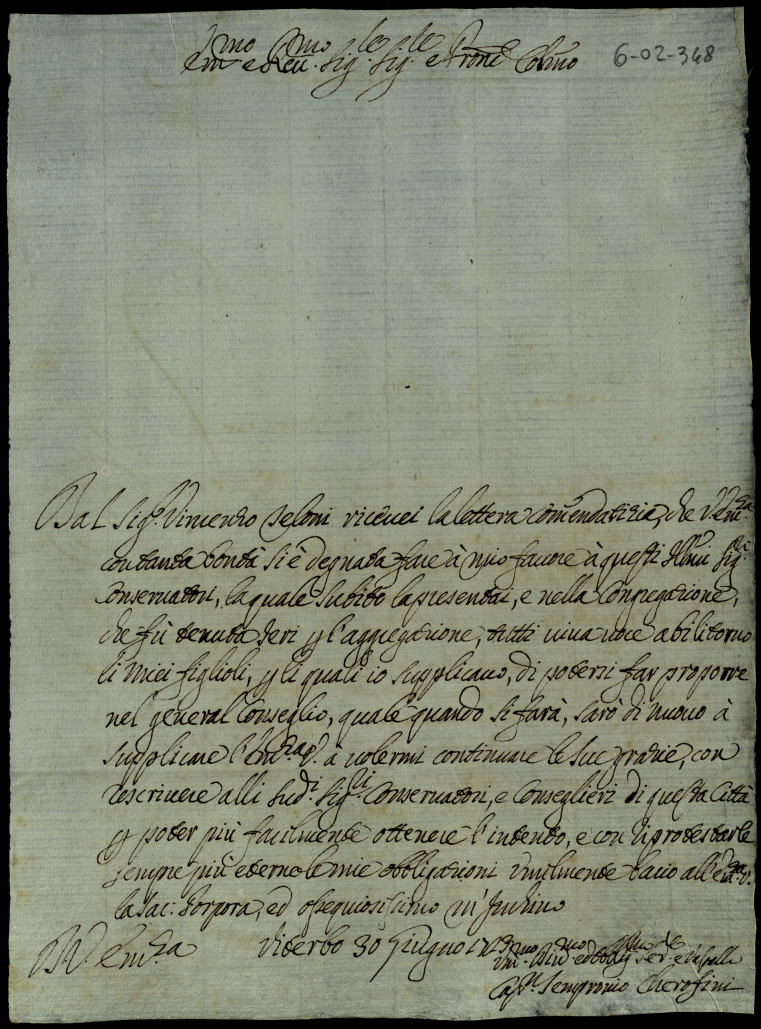 Em.mo e Rev.mo Sig.re Sig.re e Pron.e Col.mo
6-02-348
Dal Sig.r Vincenzo Seloni riceuei la lettera comendatizia, che V. Em.za
con tanta bontà si è degnata fare à mio fauore à questi Ill.mi Sig.ri
Conseruatori, la quale subito la presentai, e nella Congregazione,
che fù tenuta Ieri p l'aggregazione, tutti uiua uoce abilitorno
li miei figlioli, p li quali io supplicauo, di potersi far proporre
nel general Conseglio, quale quando si farà, sarò di nuouo à
supplicare l'Em.za V. à uolermi continuare le sue grazie, con
rescriuere alli sud.i Sig.ri Conseruatori, e Conseglieri di questa Città
p poter più facilmente ottenere l'intento, e con li protestarle
sempre più eterne le mie obbligazioni umilmente bacio all'Em.za V.
la Sac: Porpora, ed ossequiosissimo m'inchino
D. V. Em.za Viterbo 30 Giugno
Um.mo Diu.mo ed Obblig.mo Ser.e e Vassallo
Cap.n Sempronio Cherofini